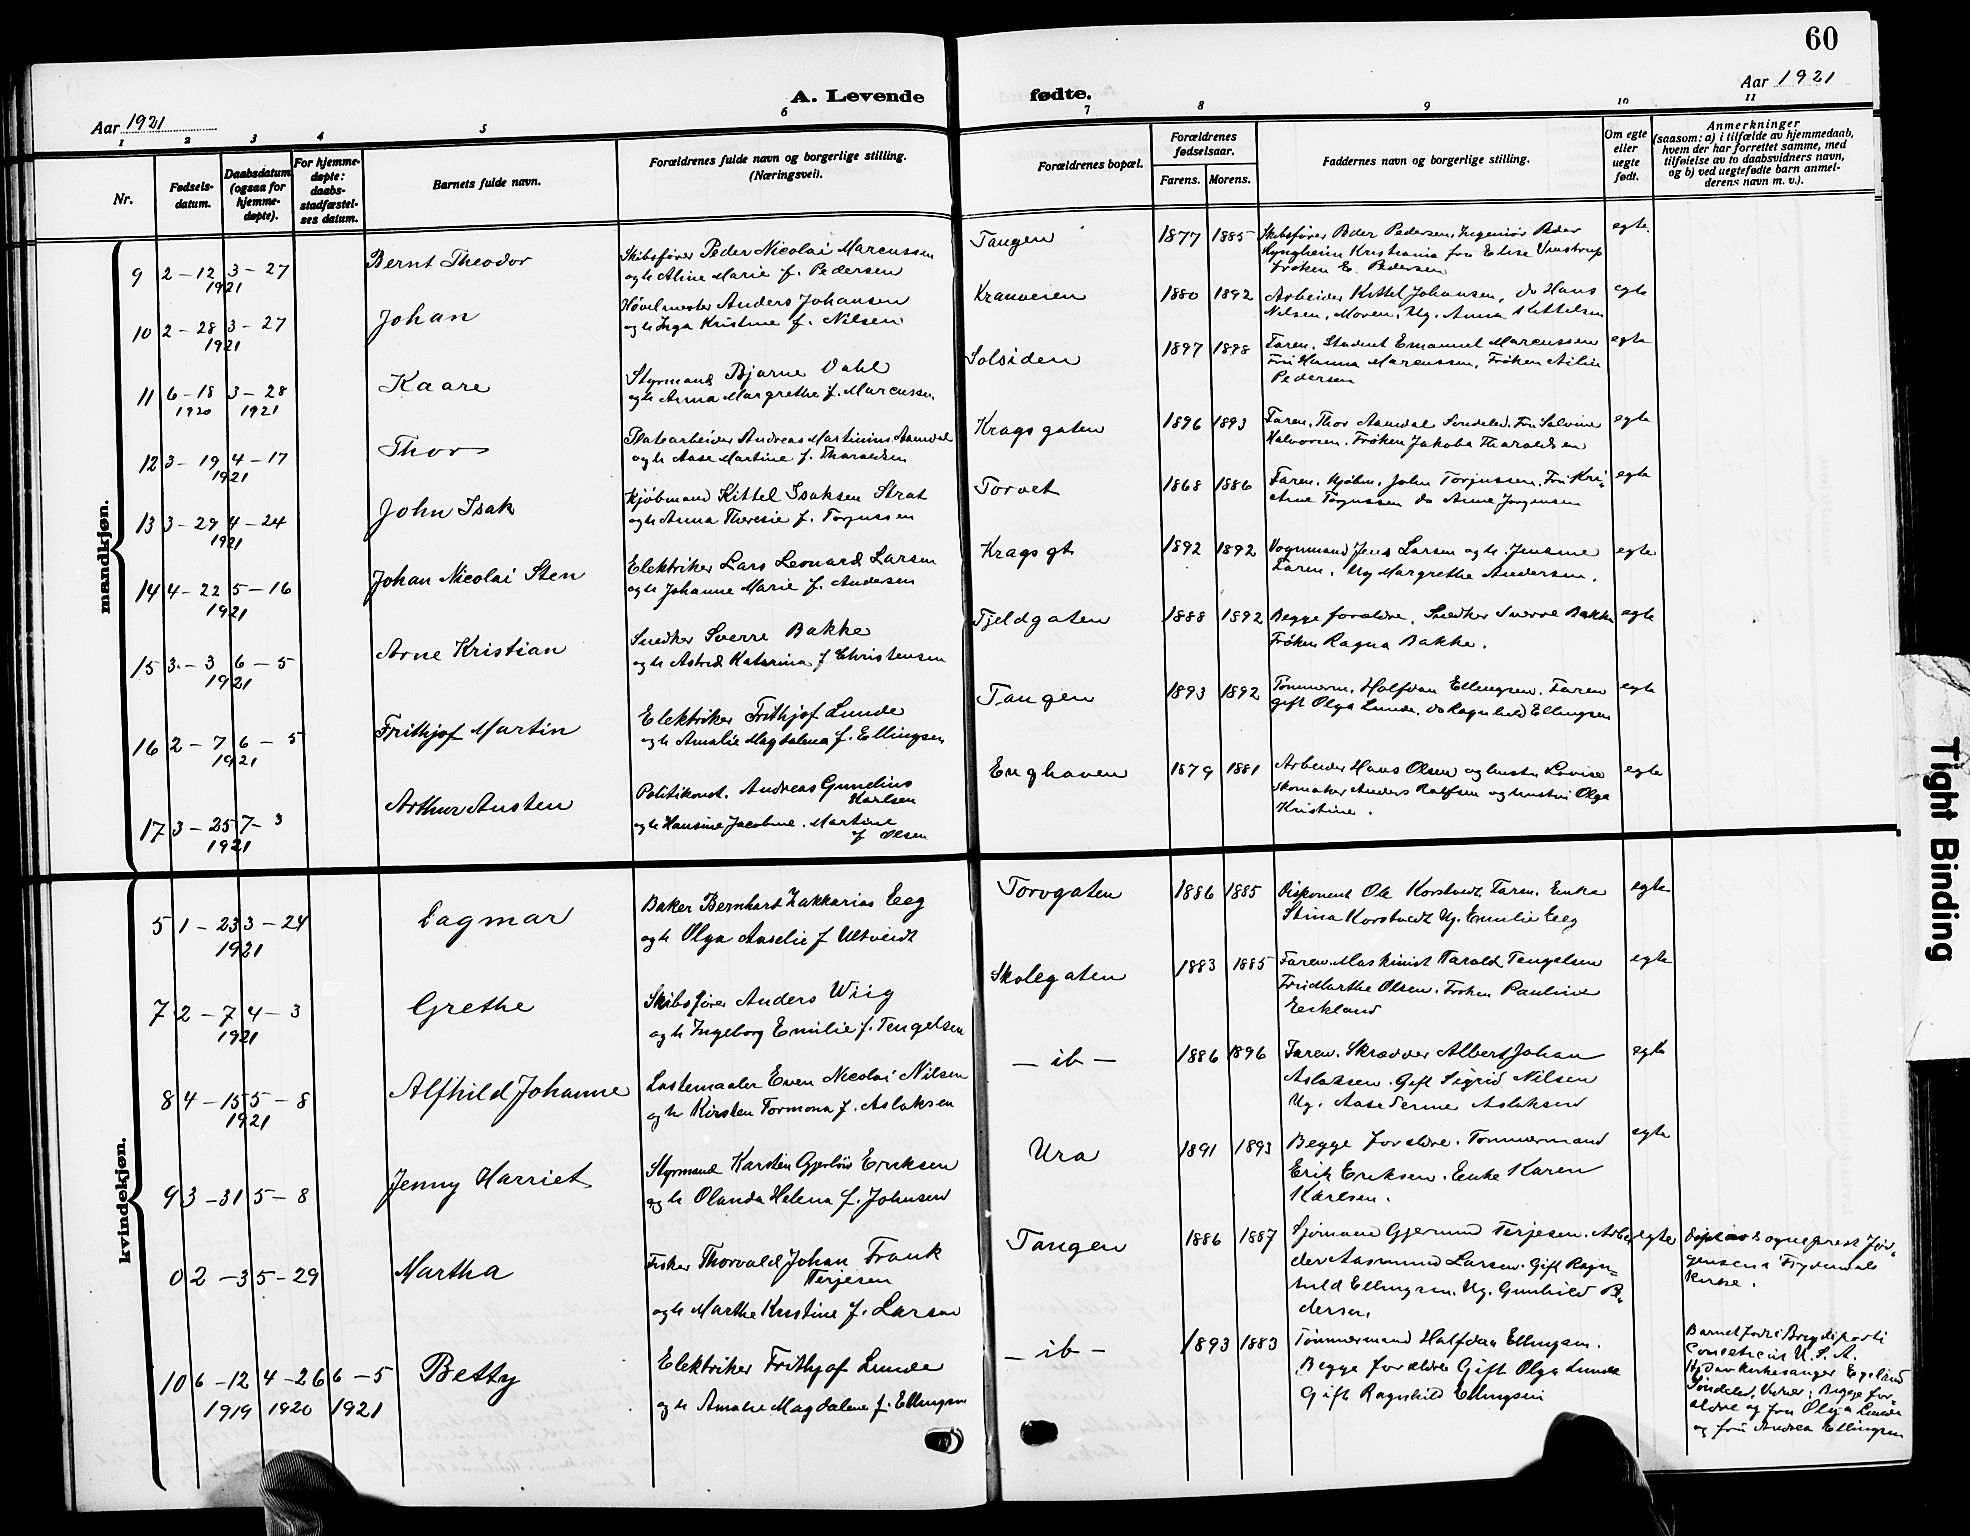 60
Aar 1921
A. Levende fødte.
Aar 1921
1 2 3 4 5 6 7 8 9 10 11
Nr.
Fødsels-
datum.
Daabsdatum
(ogsaa for
hjemme-
døpte).
For hjemme-
døpte:
daabs-
stadfæstel-
ses datum.
Barnets fulde navn.
Forældrenes fulde navn og borgerlige stilling.
(Næringsvei).
Forældrenes bopæl.
Forældrenes
fødselsaar.
Farens. Morens.
Faddernes navn og borgerlige stilling.
Om egte
eller
uegte
født.
Anmerkninger
(saasom: a) i tilfælde av hjemmedaab,
hvem der har forrettet samme, med
tilføielse av to daabsvidners navn,
og b) ved uegtefødte barn anmel-
derens navn m. v.).
mandkjøn.
9 2-12 3-27
1921
Bernt Theodor
Skibsfører Peder Nicolai Marcussen
og h Aline Marie f. Pedersen
Tangen 1877 1885
Skibsfører Peder Pedersen, Ingeniør Peder
Lyngheim Kristiania fru Elise Vinstrup
frøken E. Pedersen
egte
10 2-28 3-27
1921
Johan
Høvelmester Anders Johansen
og h Inga Kristine f. Nilsen
Kranveien 1880 1892
Arbeider Kittel Johansen, do Hans
Nilsen, Moren, Ug. Anna Kittelsen
egte
11 6-18 3-28
1920 1921
Kaare
Styrmand Bjarne Dahl
og h Anna Margrethe f. Marcussen
Solsiden 1897 1898
Faren, Student Emanuel Marcussen
Fru Hanna Marcussen, Frøken Ailin
Pedersen
egte
12 3-19 4-17
1921
Thor
Platearbeider Andreas Martinius Aamdal
og h Aase Martine f. Tharaldsen
Kragsgaten 1896 1893
Faren, Thor Aamdal Søndeled, Fru Salvine
Halvorsen, Frøken Jakoba Tharaldsen
egte
13 3-29 4-24
1921
John Isak
Kjøbmand Kittel Isaksen Strat
og h Anna Theresie f. Torjussen
Torvet 1868 1886
Faren, Kjøbm. John Torjussen, Fru Kri-
stine Torjussen do Anne Jørgensen
egte
14 4-22 5-16
1921
Johan Nicolai Sten
Elektriker Lars Leonard Larsen
og h Johanne Marie f. Andersen
Krags gt 1892 1892
Vognmand Jens Larsen og h. Jensine
Faren, Ug Margrethe Andersen.
egte
15 3-3 6-5
1921
Arne Kristian
Snedker Sverre Bakke
og h Astrid Katarina f Christensen
Fjeldgaten 1888 1892
Begge forældre, Snedker Sverre Bakke
Frøken Ragna Bakke.
egte
16 2-7 6-5
1921
Frithjof Martin
Elektriker Frithjof Lunde
og h Amalie Magdalena f. Ellingsen
Tangen 1893 1892
Tømmerm. Halfdan Ellingsen, Faren
gift Olga Lunde, do Ragnhild Ellingsen
egte
17 3-25 7-3
1921
Arthur Austen
Politikonst. Andreas Gundelius
Karlsen
og h Hansine Jacobine Martine
f Olsen
Enghaven 1879 1881
Arbeider Hans Olsen og hustru Lovise
Skomaker Anders Rolfsen og hustru Olga
Kristine.
egte
kvindekjøn.
5 1-23 3-24
1921
Dagmar
Baker Bernhart Zakkarias Eeg
og h Olga Aaselie f Ultveidt
Torvgaten 1886 1885
Disponent Ole Korstvedt Faren, Enke
Stina Korstvedt Ug. Emilie Eeg
egte
7 2-7 4-3
1921
Grethe
Skibsfører Anders Wiig
og h Ingeborg Emilie f. Tengelsen
Skolegaten 1883 1885
Faren, Maskinist Harald Tengelsen
Fru Marthe Olsen, Frøken Pauline
Eckland
egte
8 4-15 5-8
1921
Alfhild Johanne
Lastemaaler Even Nicolai Nilsen
og h Kirsten Tormona f. Aslaksen
- ib - 1886 1896
Faren, Skrædder Albert Johan
Aslaksen. Gift Sigrid Nilsen
Ug. Aase Aslaksen
egte
9 3-31 5-8
Jenny Harriet
Styrmand Karsten Gjerløis Eriksen
og h Olanda Helena f. Johnsen
Ura 1891 1893
Begge forældre. Tømmermand
Erik Eriksen. Enke Karen
Karlsen.
egte
0 2-3 5-29
Martha
Fisker Thorvald Johan Frank
Terjesen
og h Marthe Kristine f. Larsen
Tangen 1886 1887
Sjømand Gjermund Terjesen. Arbei-
der Aasmund Larsen. Gift Ragn-
hild Ellingsen. Ug. Gunhild Pe-
dersen.
egte
Døpt av sogneprest Jør-
gensen i Frydendals
Kirke.
10 6-12 4-26 6-5
1919 1920 1921
Betty
Elektriker Frithjof Lunde
og h Amalie Magdalene f. Ellingsen
- ib - 1893 1883
Tømmermand Halfdan Ellingsen.
Begge forældre Gift Olga Lunde
Gift Ragnhild Ellingsen
Barnet født i Bridgeport
Conecticut U.S.A.
Hjd av kirkesanger Egeland
Søndeled, Vidner: Begge for-
ældre og fru Olga Lunde
og fru Andrea Ellingsen
Tight Binding